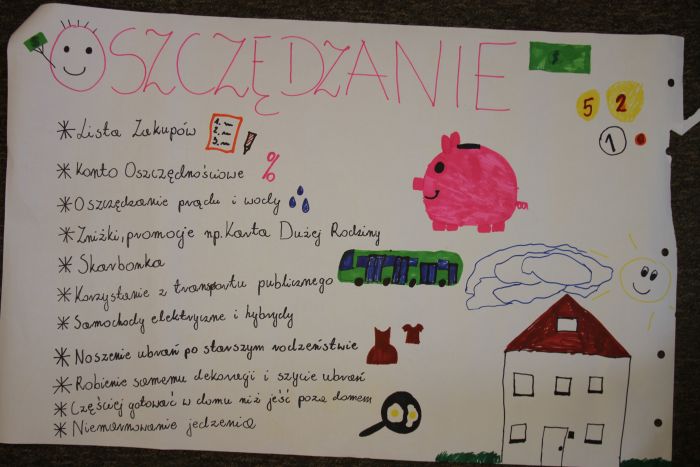 OSZCZĘDZANIE
$
5 2
1
* Lista Zakupów
1.
2.
3.
* Konto Oszczędnościowe %
* Oszczędzanie prądu i wody
* Zniżki, promocje np. Karta Dużej Rodziny
* Skarbonka
* Korzystanie z transportu publicznego
* Samochody elektryczne i hybrydy
* Noszenie ubrań po starszym rodzeństwie
* Robienie samemu dekoracji i szycie ubrań
* Częściej gotować w domu niż jeść poza domem
* Niemarnowanie jedzenia